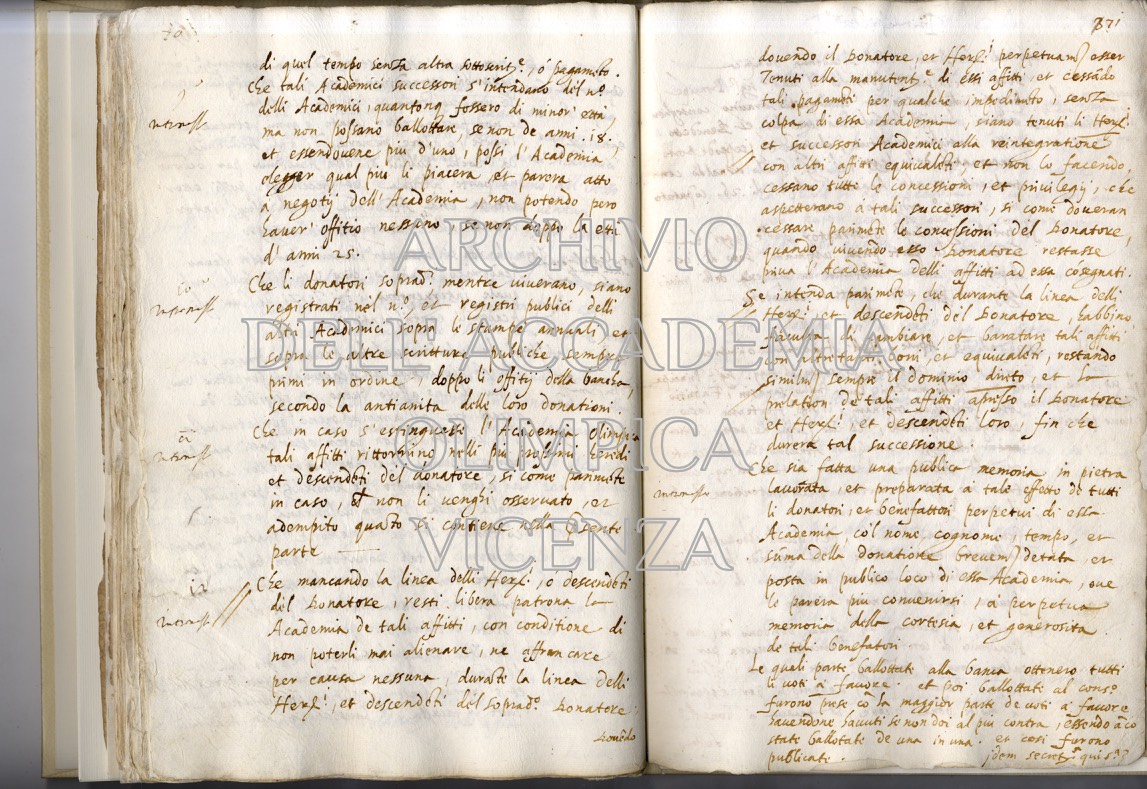 di quel tempo senza altra sottoscrit.e, o pagam̃to.
Che tali Academici successori s'intendano del n.o
delli Academici, quantonq fossero di minor età,
intromess
ma non possano ballottare, se non de anni .18.
et essendovene più d'uno, possi l'Academia
elegger qual più li piacerà, et parerà atto
a negotij dell'Academia, non potendo però
haver offitio nessuno, se non doppo la età
d'anni 25.
Che li donatori soprad.i mentre viverano, siano
intromess
registrati nel n.o, et registri publici delli
altri Academici sopra le stampe annuali, et
sopra le altre scritture publiche sempre
primi in ordine, doppo li offitij della bancha,
secondo la antianità delle loro donationi.
Che in caso s'estinguesse l'Academia Olimpica
intromess
tali affitti rittornino nelli più prossimi heredi
et descendẽti del donatore, si come parimẽte
in caso, che non li vengħi osservato, et
adempito quãto si contiene nella p̃sente
parte
12
Che mancando la linea delli Hered.i, o descendẽti
intromessa
del Donatore, resti libera patrona la
Academia de tali affitti, con conditione di
non poterli mai alienare, ne affrancare
per causa nessuna, durãte la linea delli
Hered.i, et descendẽti del soprad.o Donatore.
Dovẽdo
871
dovendo il Donatore, et Hered.i perpetuam̃ esser
Tenuti alla manutent.e di essi affitti, et cessãdo
tali pagamẽti per qualche impedimẽto, senza
colpa di essa Academia, siano tenuti li Hered.i
et successori Academici alla reintegratione
con altri affitti equivalẽti, et non lo facendo,
cessano tutte le concessioni, et privilegij, che
aspetterano à tali successori, si come doveran
cessare parimẽte le concessioni del Donatore,
quando vivendo esso Donatore restasse
priva l'Academia delli affitti ad essa cõsegnati.
Se intenda parimẽte, che durante la linea delli
Hered.i, et descendẽti del Donatore, habbino
facultà di cambiare, et baratare tali affitti
con altretãti boni, et equivalẽti, restando
similm̃ sempre il dominio direto, et la
prelation de tali affitti apresso il Donatore
et Hered.i, et descendẽti loro, fin che
durerà tal successione.
Che sia fatta una publica memoria in pietra
intromessa
lavorata, et preparata à tale effetto de tutti
li donatori, et benefattori perpetui di essa
Academia, col nome, cognome, tempo, et
sũma della donatione brevem̃ detata, et
posta in publico loco di essa Academia, ove
le parerà più convenirsi, à perpetua
memoria della cortesia, et generosità
de tali benefatori.
Le quali parte ballottate alla banca ottenero tutti
li voti à favore. et poi ballottate al cons.o
furono prese cõ la maggior parte de voti à favore
havendone havuti se non doi al più contra, essendo ãco
state ballotate de una in una. et così furono
publicate.